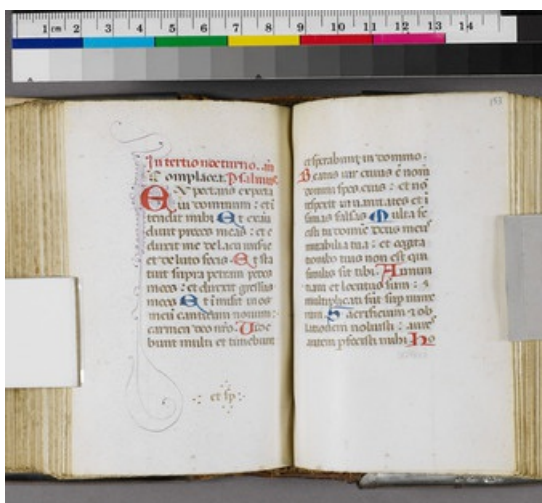 1 cm 2 3 4 5 6 7 8 9 10 11 12 13 14
In tertio nocturno. añ
Complaceat. Psalmus.
Expectans expecta
vi dominum: et ĩ
tendit mihi Et exau
divit preces meas: et e
duxit me de lacu miserie
et de luto fecis Et sta
tuit supra petram pedes
meos: et direxit gressus
meos Et imisit in os
meũ canticum novum:
carmen deo nr̃o. Vide
bunt multi et timebunt
et sp̃
153
et sperabunt in domino:
Beatus vir cuius ẽ nom̃
domini spes eius: et nõ
respexit in vanitates et ĩ
sanias falsas Multa fe
cisti tu domine deus meus
mirabilia tua: et cogita
tionibus tuis non est qui
similis sit tibi Annun
tiavi et locutus sum:
multiplicati sũt sup nume
rum Sacrificium et ob
lationem noluisti: aures
autem p̃fecisti mihi Ho